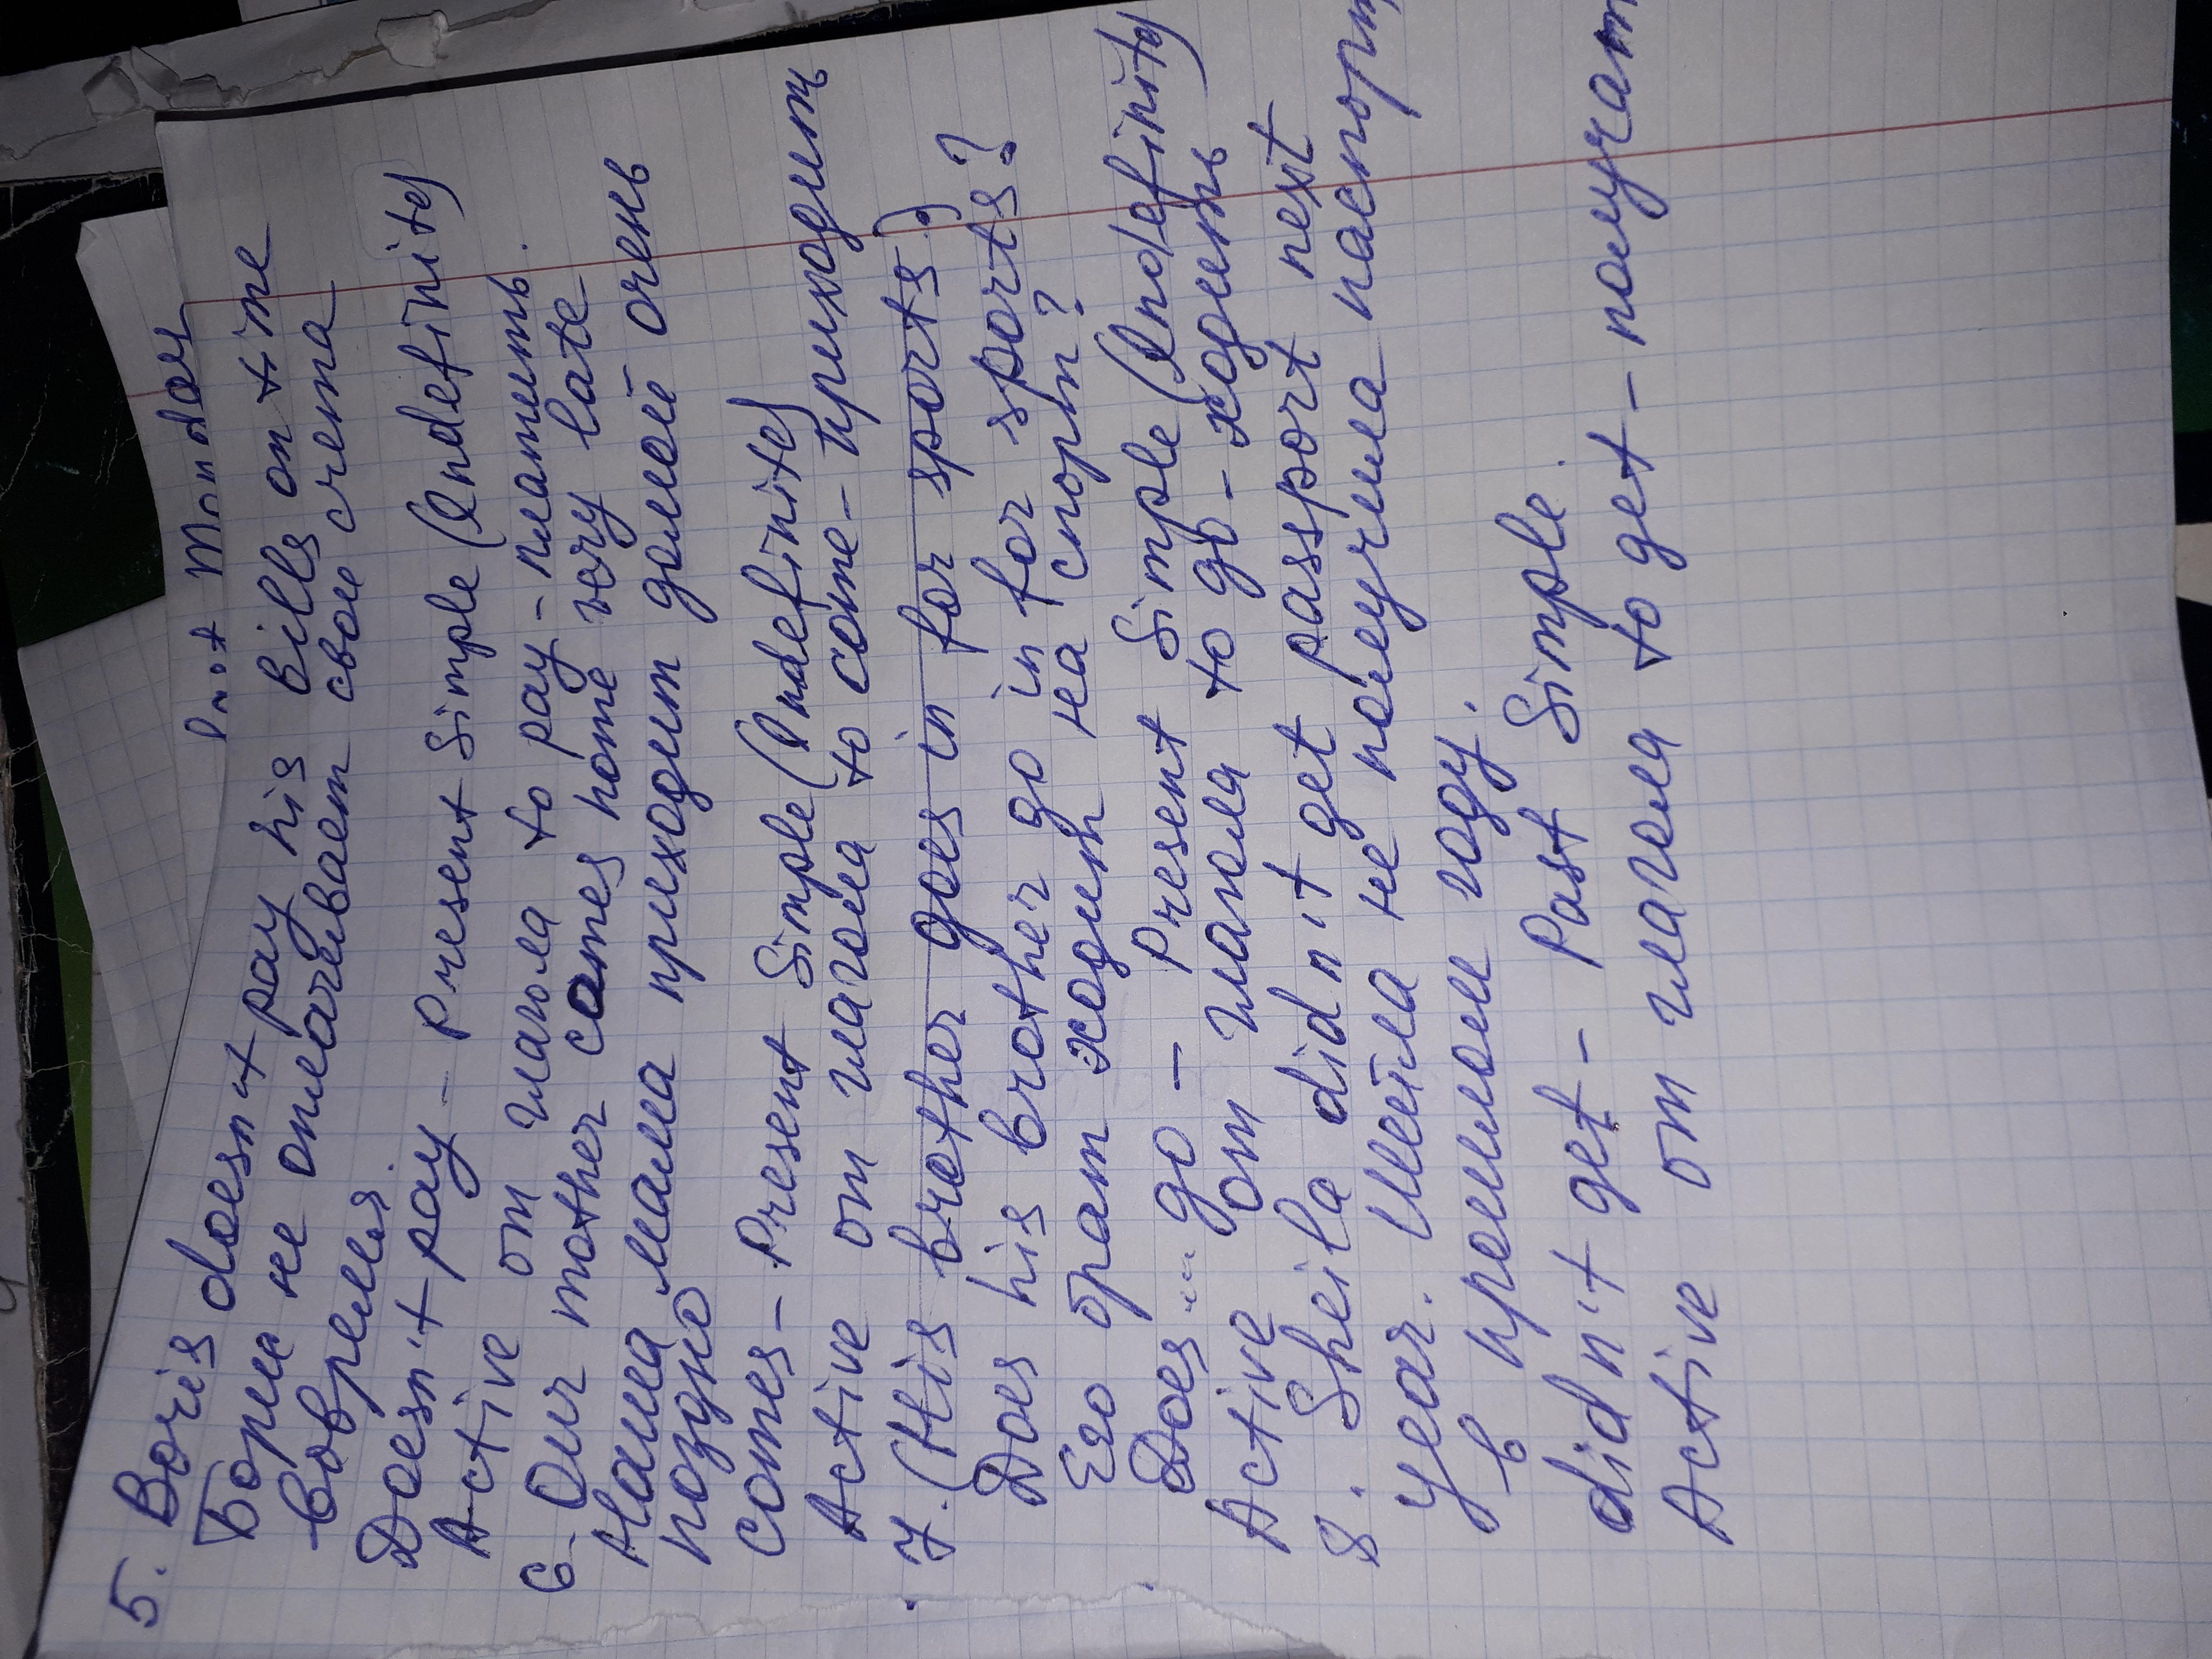 Last Monday
5. Boris doesn't pay his bills on time
Борис не оплачивает свои счета
вовремя.
Doesn't pay - Present Simple (Indefinite)
Active от глагола to pay - платить.
6. Our mother comes home very late
Наша мама приходит домой очень
поздно
Comes - Present Simple (Indefinite)
Active от глагола to come - приходить
7. (His brother goes in for sports.)
Does his brother go in for sports?
Его брат ходит на спорт?
Does ... go - Present Simple (Indefinite)
Active от глагола to go - ходить
8. Sheila didn't get passport next
year. Шейла не получила паспорт
в прошлом году.
didn't get - Past Simple.
Active от глагола to get - получать